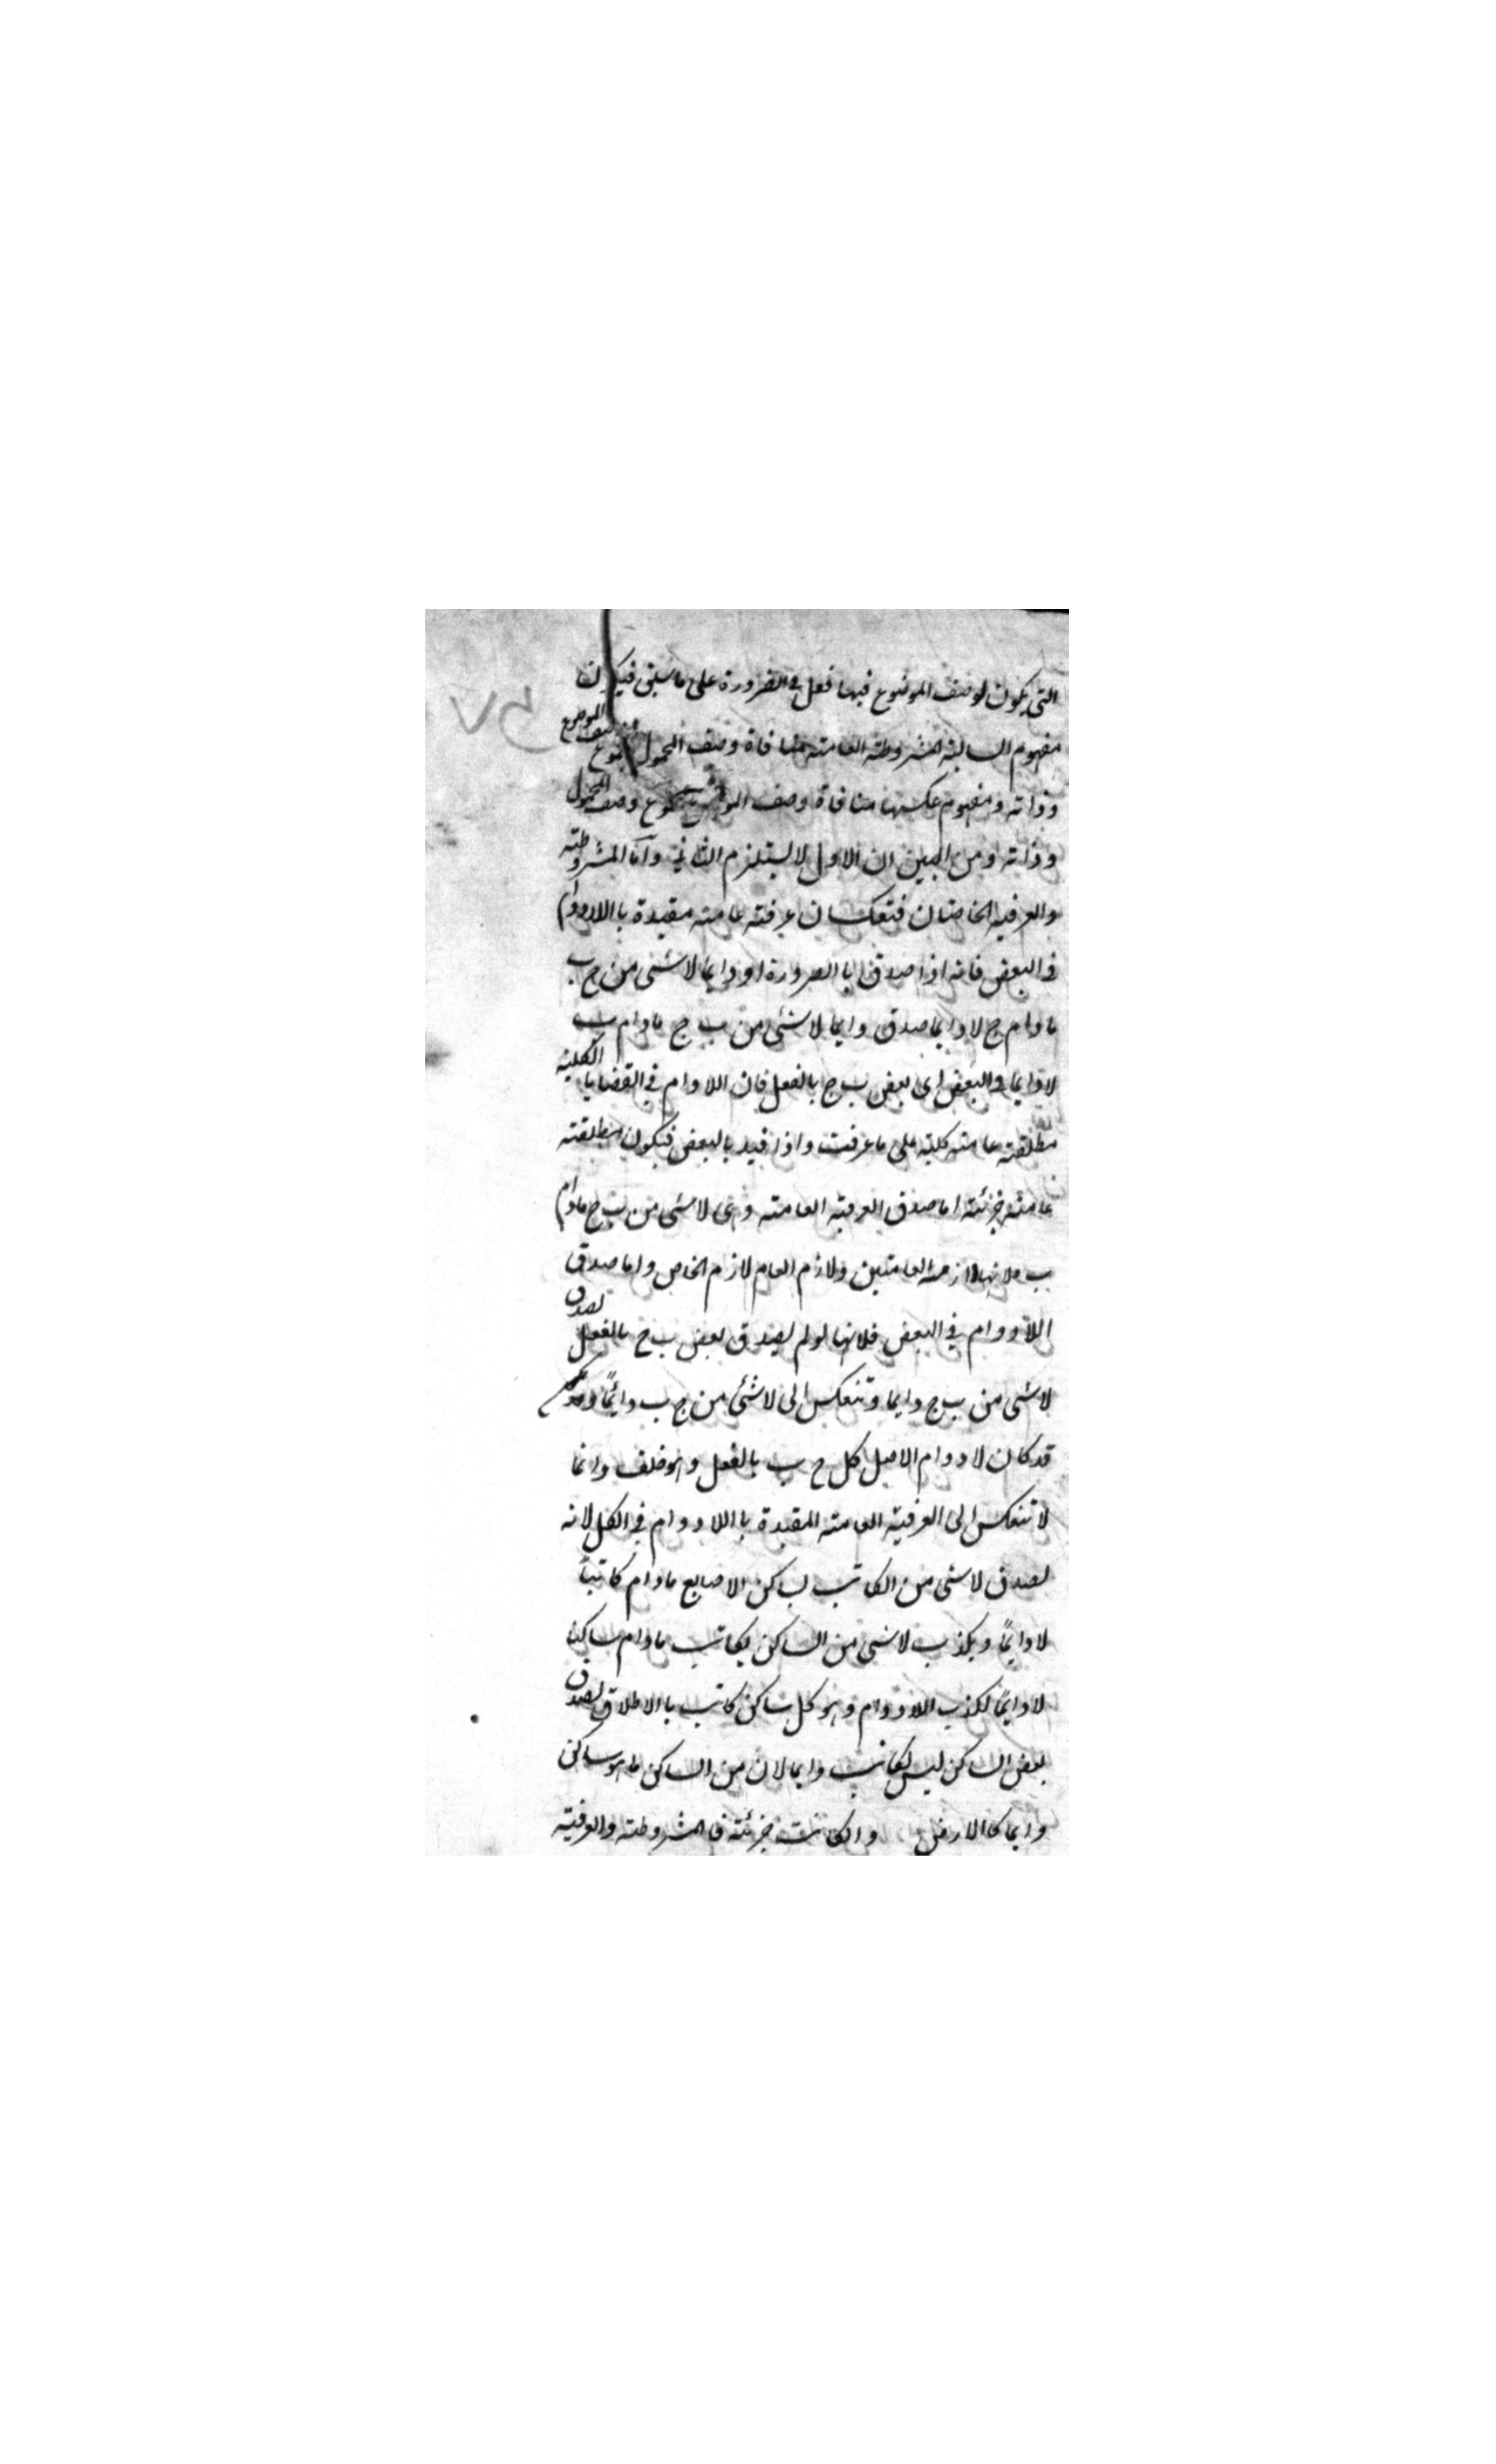 التى يكون لوصف الموضوع فيها فعل فى الضرورة على ما سبق فيكون
مفهوم السالبة المشروطة العامة منافاة وصف المحمول لمجموع وصف الموضوع
وذاته ومفهوم عكسها منافاة وصف الموضوع لمجموع وصف المحمول
وذاته ومن البين ان الاول لا يستلزم الثانى واما المشروطة
والعرفية الخاصتان فتنعكسان عرفية عامة مقيدة باللادوام
فى البعض فانه اذا صدق بالضرورة او دايما لا شئ من ج ب
مادام ج لا دايما صدق دايما لا شئ من ب ج مادام ب
لا دايما فى البعض اى بعض ب ج بالفعل فان اللادوام فى القضايا الكلية
مطلقة عامة كلية على ما عرفت واذا قيد بالبعض فيكون مطلقة
عامة جزئية اما صدق العرفية العامة وهى لا شئ من ب ج مادام
ب فلانها لازمة العامتين ولازم العام لازم الخاص واما صدق
اللادوام فى البعض فلانها لو لم يصدق بعض ب ج بالفعل لصدق
لا شئ من ب ج دايما وتنعكس الى لا شئ من ج ب دائمًا
قد كان لا دوام الاصل كل ج ب بالفعل وهو خلف وانما
لا تنعكس الى العرفية العامة المقيدة باللادوام فى الكل لانه
يصدق لا شئ من الكاتب بساكن الاصابع مادام كاتبا
لا دايمًا ويكذب لا شئ من الساكن بكاتب مادام ساكنا
لا دايمًا لكذب اللادوام وهو كل ساكن كاتب بالاطلاق لصدق
بعض الساكن ليس بكاتب دايما لان من الساكن ما هو ساكن
دايما كالارض والكانت جزئية فالمشروطة والعرفية